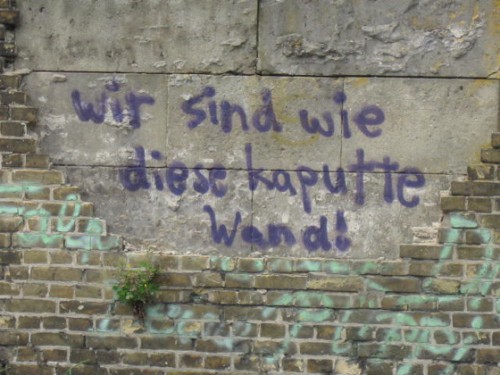 wir sind wie
diese kaputte
Wand!